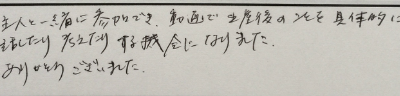 主人と一緒に参加でき、動画で生産後のことを具体的に
話したり考えたりする機会になりました。
ありがとうございました。